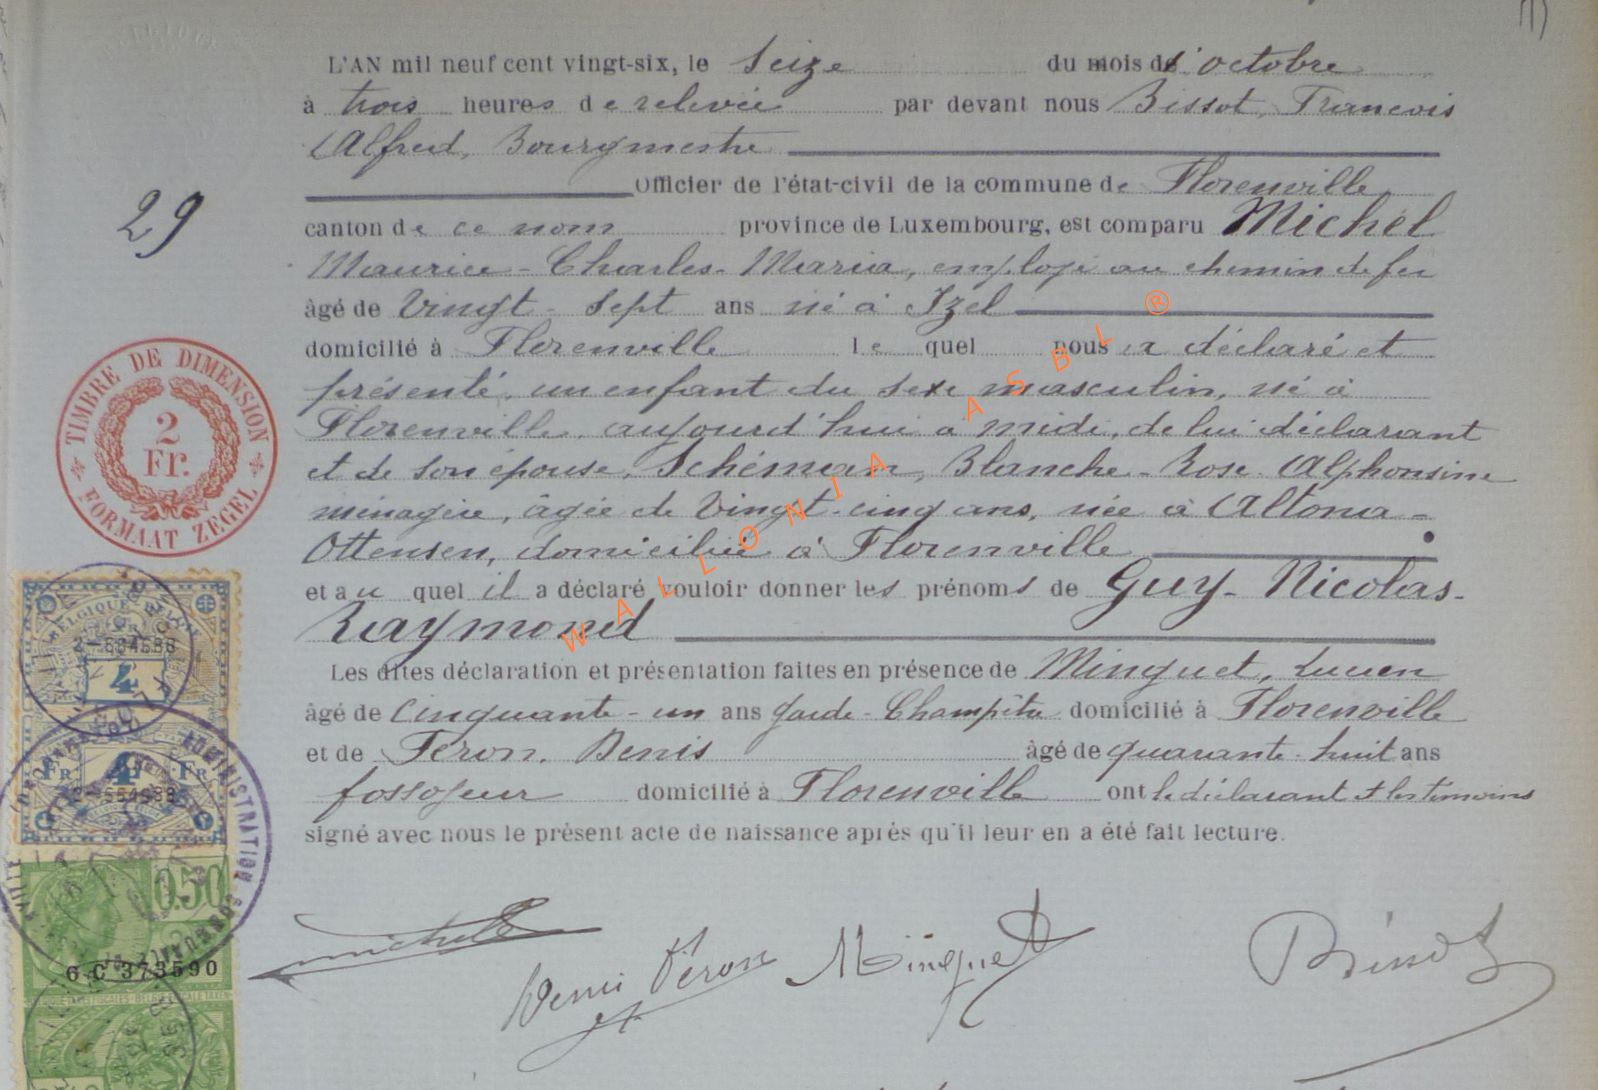 L'AN mil neuf cent vingt-six, le Seize du mois d'octobre
à trois heures de relevée par devant nous Bissot, Francois
Alfred, Bourgmestre
Officier de l'état-civil de la commune de Florenville
29
canton de ce nom province de Luxembourg, est comparu Michel
Maurice-Charles-Maria, employé au chemin de fer
âgé de Vingt-Sept ans né à Izel
domicilié à Florenville le quel nous a déclaré et
présenté, un enfant du sexe masculin, né à
Florenville, aujourd'hui à midi, de lui déclarant
et de son épouse, Schéman, Blanche-Rose-Alphonsine
ménagère, âgée de Vingt-cinq ans, née à Altona-
Ottensen, domiciliée à Florenville
et au quel il a déclaré vouloir donner les prénoms de Guy-Nicolas-
Raymond
Les dites déclaration et présentation faites en présence de Minguet, Lucien
âgé de Cinquante-un ans garde-Champêtre domicilié à Florenville
et de Feron, Denis âgé de quarante-huit ans
fossoyeur domicilié à Florenville ont le déclarant et les témoins
signé avec nous le présent acte de naissance après qu'il leur en a été fait lecture.
Denis Féron Minguet Bissot
TIMBRE DE DIMENSION
2
Fr.
FORMAAT ZEGEL
4
Fr 4 Fr
ADMINISTRATION COMMUNALE
0.50
6 C 373590
WALLONIA ASBL ®